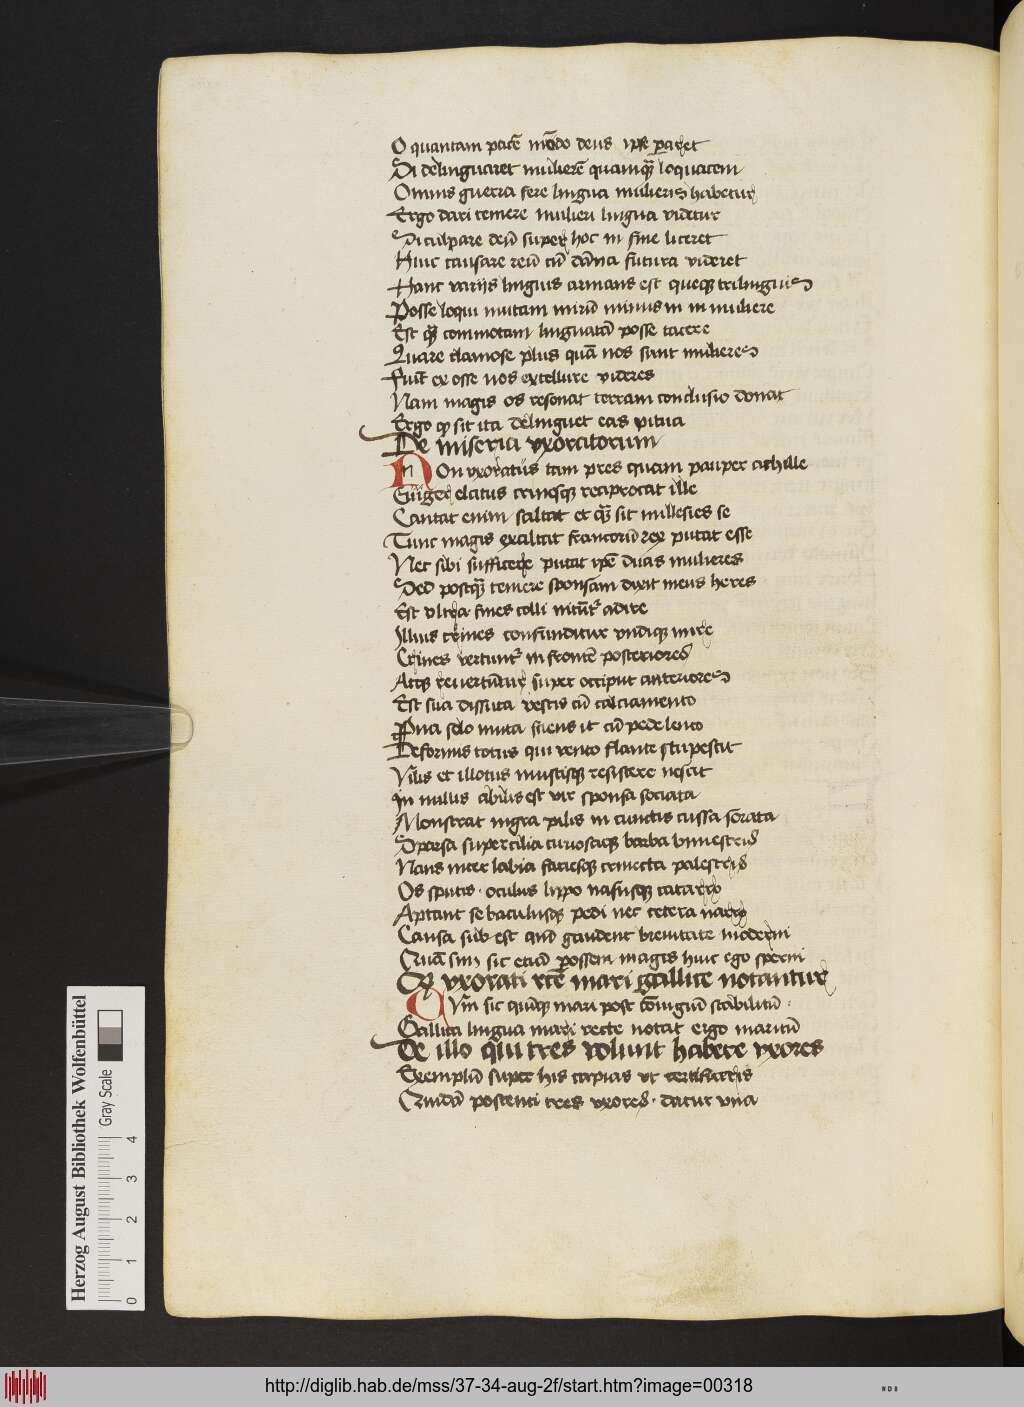 O quantam pacē mōdo deus ipse pararet
Si delinguaret mulierē quamqȝ loquacem
Omnis guerra fere lingua mulieris habetur
Ergo dari temere mulieri lingua videtur
Si culpare deū super hoc in fine liceret
Huic causare reū cū dāna futura videret
Hanc varijs linguis armans est queqȝ trilinguis
Posse loqui mutam mirū minus in muliere
Est qȝ commotam linguatā posse tacere
Quare clamose plus quā nos sunt mulieres
Fuit ex osse nos excellure videres
Nam magis os resonat terram conclusio donat
Ergo qȝ sit ita delinguet eas pituita
De miseria vxoratorum
NOn vxoratus tam pres quam pauper achille
Eriger elatus crinesqȝ reciprocat ille
Cantat enim saltat et qȝ sit millesies se
Tunc magis exaltat francorū rex putat esse
Nec sibi sufficere putat ipē duas mulieres
Sed postqȝ temere sponsam dixit meus heres
Est vltra fines colli nitūt᷑ adire
Illius crines confunditur vndiqȝ mire
Crines vertunt᷑ in frontē posteriores
Atqȝ revertūtur super occiput anteriores
Est sua dissuta vestis cū calciamento
solo muta sciens it cū pede lento
Deformis totus qui vento flante stupescit
Vilis et illotus mustisqȝ resistere nescit
In nullis abilis est vir sponsa sociata
Monstrat nigra pilis in cunctis cussa forata
Sparsa supercilia curiosaqȝ barba
Naris inter labia faciesqȝ palestris
Os sputis oculus lippo nasusqȝ catarro
Aptant se baculusqȝ pedi nec cetera narro
Causa sub est qm̄ gaudent breuitate moderni
Quā sim sic etiā possem magis huic ego sperni
Qȝ vxorati rcē mari gallice notantur
CVm sic quiqȝ mari post cōiugiū stabilitū
Gallica lingua mari recte notat ergo maritū
De illo qui tres volunt habere vxores
Exemplū super his capias vt certificeris
Quidā poscenti tres vxores datur vna
Herzog August Bibliothek Wolfenbüttel
Gray Scale
0 1 2 3 4
http://diglib.hab.de/mss/37-34-aug-2f/start.htm?image=00318